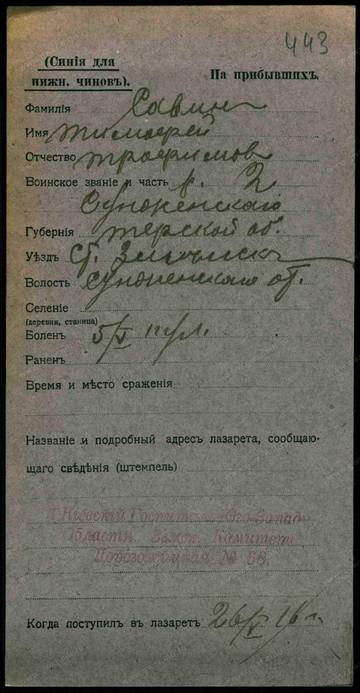 443
(Синія для
нижн. чиновъ).
На прибывшихъ.
Фамилія Савин
Имя Тимофей
Отчество Трофимов
Воинское званіе и часть р. 2
Сунженскаго
Губернія Терской об.
Уѣздъ Ст.
Волость Сунженскаго от.
Селеніе
(деревня, станица)
Боленъ 5/V
Раненъ
Время и мѣсто сраженія
Названіе и подробный адресъ лазарета, сообщаю-
щаго свѣдѣнія (штемпель)
Госпит. Юго-Запад.
Областн. Земск. Комитета
Дорогожицкая № 68.
Когда поступилъ въ лазаретъ 26/V 16 г.